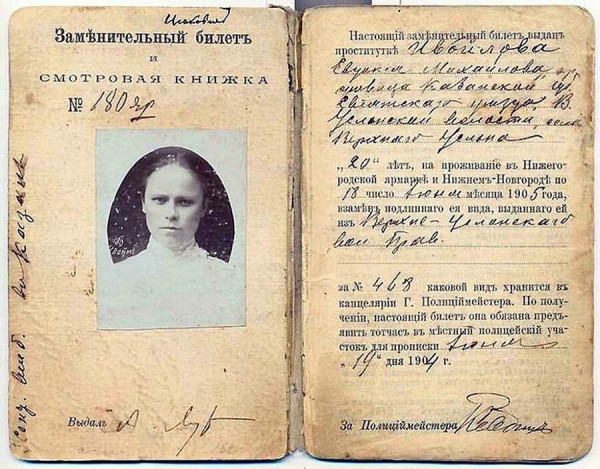 Замѣнительный билетъ
и
СМОТРОВАЯ КНИЖКА
№ 180 яр
Выдалъ
въ Казань
Настоящій замѣнительный билетъ выданъ
проституткѣ
Михайлова
Казанской губ.
уѣзда, В.
Услонской волости, села
Верхняго Услона
„20" лѣтъ, на проживаніе въ Нижего-
родской ярмаркѣ и Нижнемъ-Новгородѣ по
18 число Іюня мѣсяца 1905 года,
взамѣнъ подлиннаго ея вида, выданнаго ей
изъ Верхне-Услонскаго
вол Прав.
за № 468 каковой видъ хранится въ
канцеляріи Г. Полиціймейстера. По полу-
ченіи, настоящій билетъ она обязана предъ-
явить тотчасъ въ мѣстный полицейскій уча-
стокъ для прописки Іюня
„19" дня 1904 г.
За Полиціймейстера